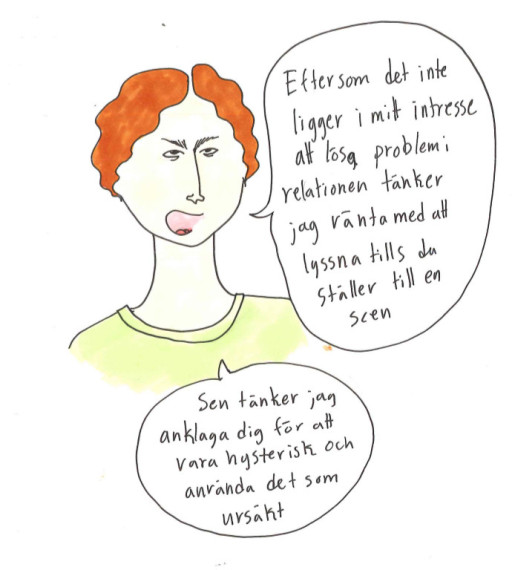 Eftersom det inte
ligger i mitt intresse
att lösa problem i
relationen tänker
jag vänta med att
lyssna tills du
ställer till en
scen
Sen tänker jag
anklaga dig för att
vara hysterisk och
använda det som
ursäkt